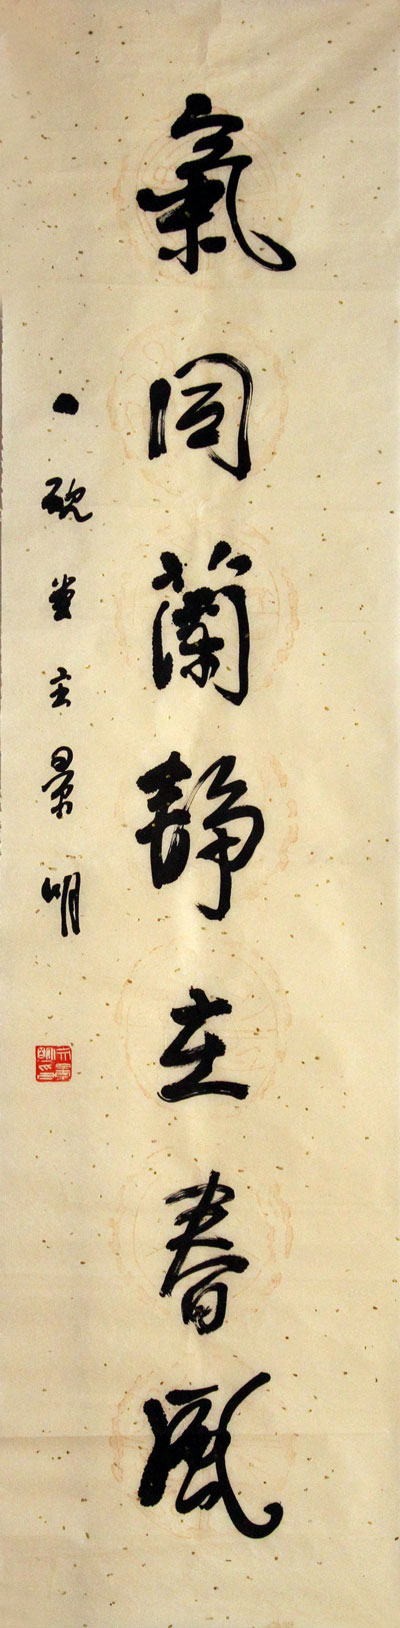 氣同蘭静在春風
一硯堂主景明